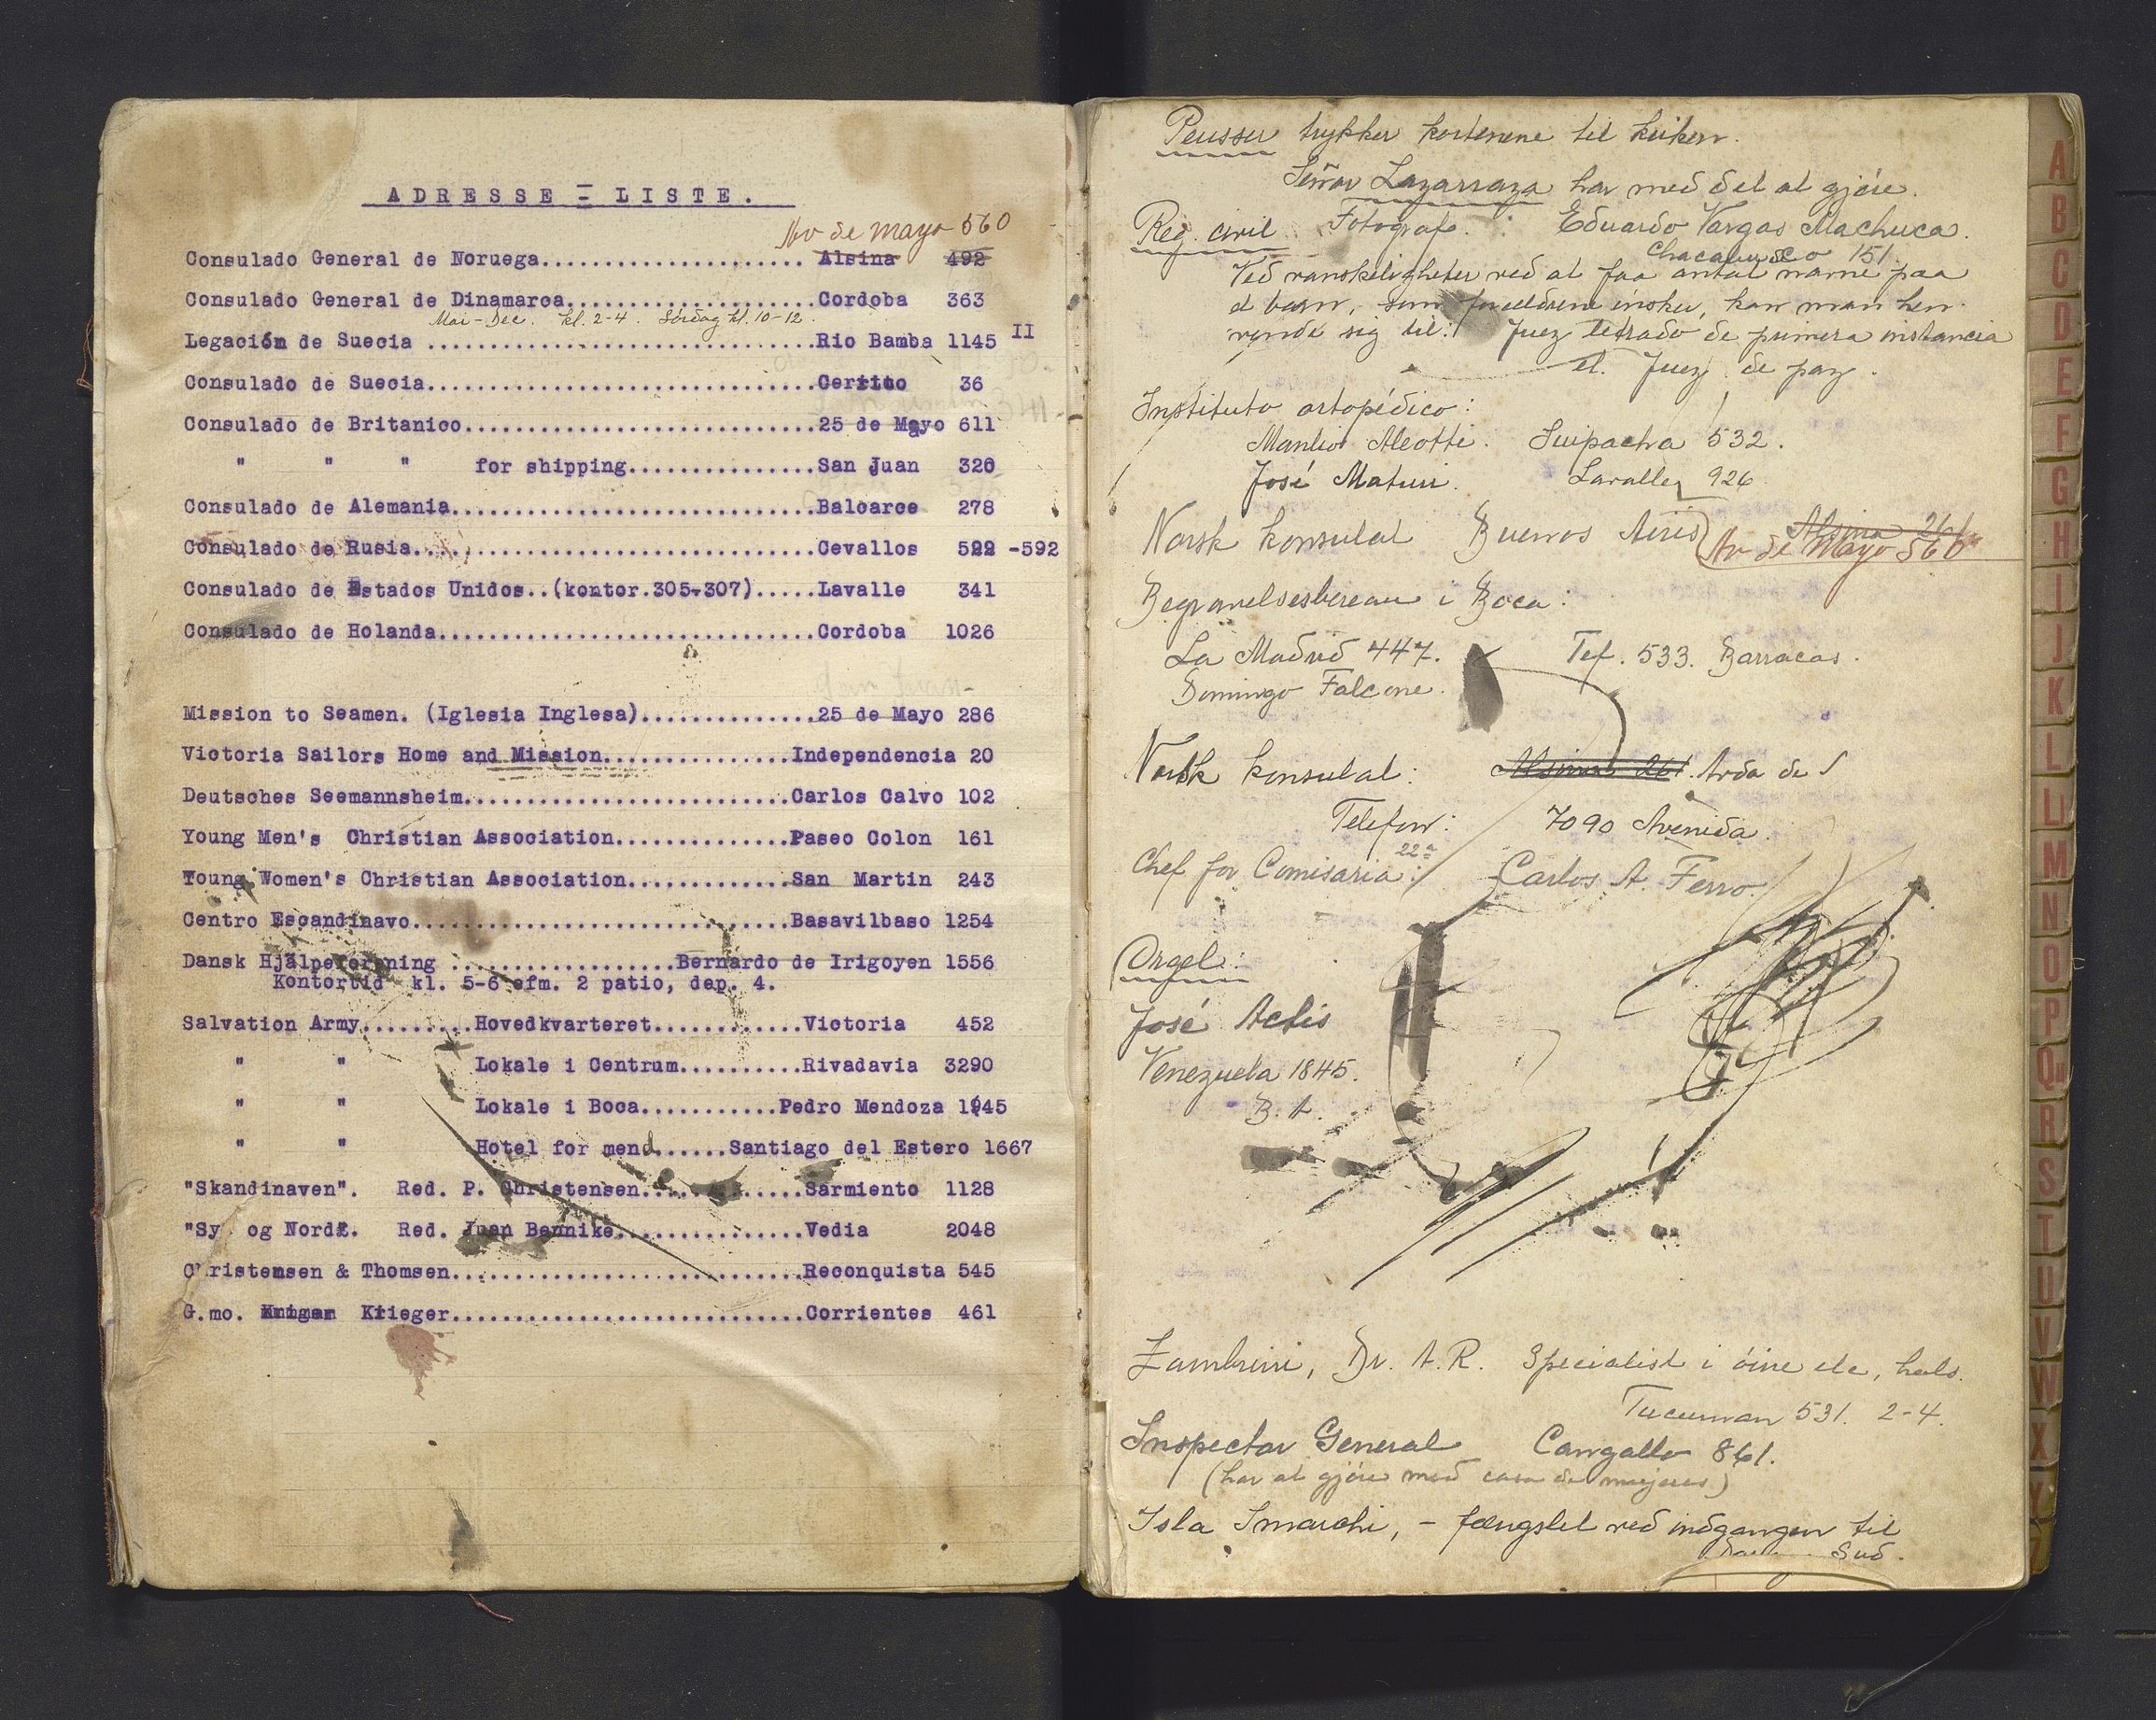 ADRESSE - LISTE.
Av de Mayo 560
Consulado General de Noruega..................... Alsina 492
Consulado General de Dinamarca....................Cordoba 363
Mai-Dec. kl. 2-4. Lördag kl. 10-12.
Legación de Suecia ...............................Rio Bamba 1145 II
Consulado de Suecia...............................Cerrito 36
Consulado de Britanico............................25 de Mayo 611
" " " for shipping...............San Juan 320
Consulado de Alemania.............................Balcarce 278
Consulado de Rusia................................Cevallos 592 -592
Consulado de Estados Unidos..(kontor.305-307).....Lavalle 341
Consulado de Holanda..............................Cordoba 1026
Mission to Seamen. (Iglesia Inglesa)..............25 de Mayo 286
Victoria Sailors Home and Mission...............Independencia 20
Deutsches Seemannsheim..........................Carlos Calvo 102
Young Men's Christian Association..............Paseo Colon 161
Young Women's Christian Association.............San Martin 243
Centro Escandinavo..............................Basavilbaso 1254
Dansk Hjälpeforening ..................Bernardo de Irigoyen 1556
Kontortid kl. 5-6 efm. 2 patio, dep. 4.
Salvation Army.........Hovedkvarteret............Victoria 452
" " Lokale i Centrum..........Rivadavia 3290
" " Lokale i Boca...........Pedro Mendoza 1945
" " Hotel for mend......Santiago del Estero 1667
"Skandinaven". Red. P. Christensen.............Sarmiento 1128
"Sy og Nord". Red. Juan Bennike...............Vedia 2048
Christensen & Thomsen............................Reconquista 545
G.mo. Krieger............................Corrientes 461
Peusser trykker kortenene til kirken.
Señor Lazarraza har med det at gjöre.
Reg. civil Fotograf: Eduardo Vargas Machuca.
Chacabuco 151.
Ved vanskeligheter ved at faa antat navne paa
et barn, som foreldrene önsker, kan man hen-
vende sig til: Juez letrado de primera instancia
el. Juez de paz.
Instituto ortopédico:
Manlio Aleotti. Suipacha 532.
José Maturi. Lavalle 926
Norsk konsulat Buenos Aires Alsina 261
Av de Mayo 560
Begravelsesbureau i Boca:
La Madrid 447. Tef. 533. Barracas.
Domingo Falcone.
Norsk konsulat: Alsina 261. Avda de
Telefon: 7090 Avenida.
Chef for Comisaria 22a: Carlos A. Ferro.
Orgel:
José Actis
Venezuela 1845.
B. A.
Zambrini, Dr. A.R. Specialist i öine etc, hals.
Tucuman 531. 2-4.
Inspector General Cangallo 861.
(har at gjöre med casa de mujeres)
Isla Imarchi, - fængslet ved indgangen til
Sud.
A
B
C
D
E
F
G
H
I
J
K
L
Ll
M
N
O
P
Qu
R
S
T
U
V
W
X
Y
Z